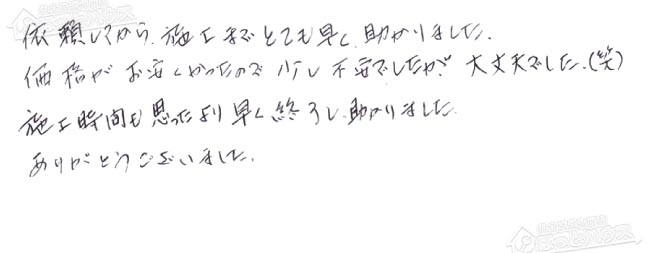 依頼してから、施工までとても早く、助かりました。
価格がお安くかったので少し不安でしたが、大丈夫でした。(笑)
施工時間も思ったより早く終了し、助かりました。
ありがとうございました。